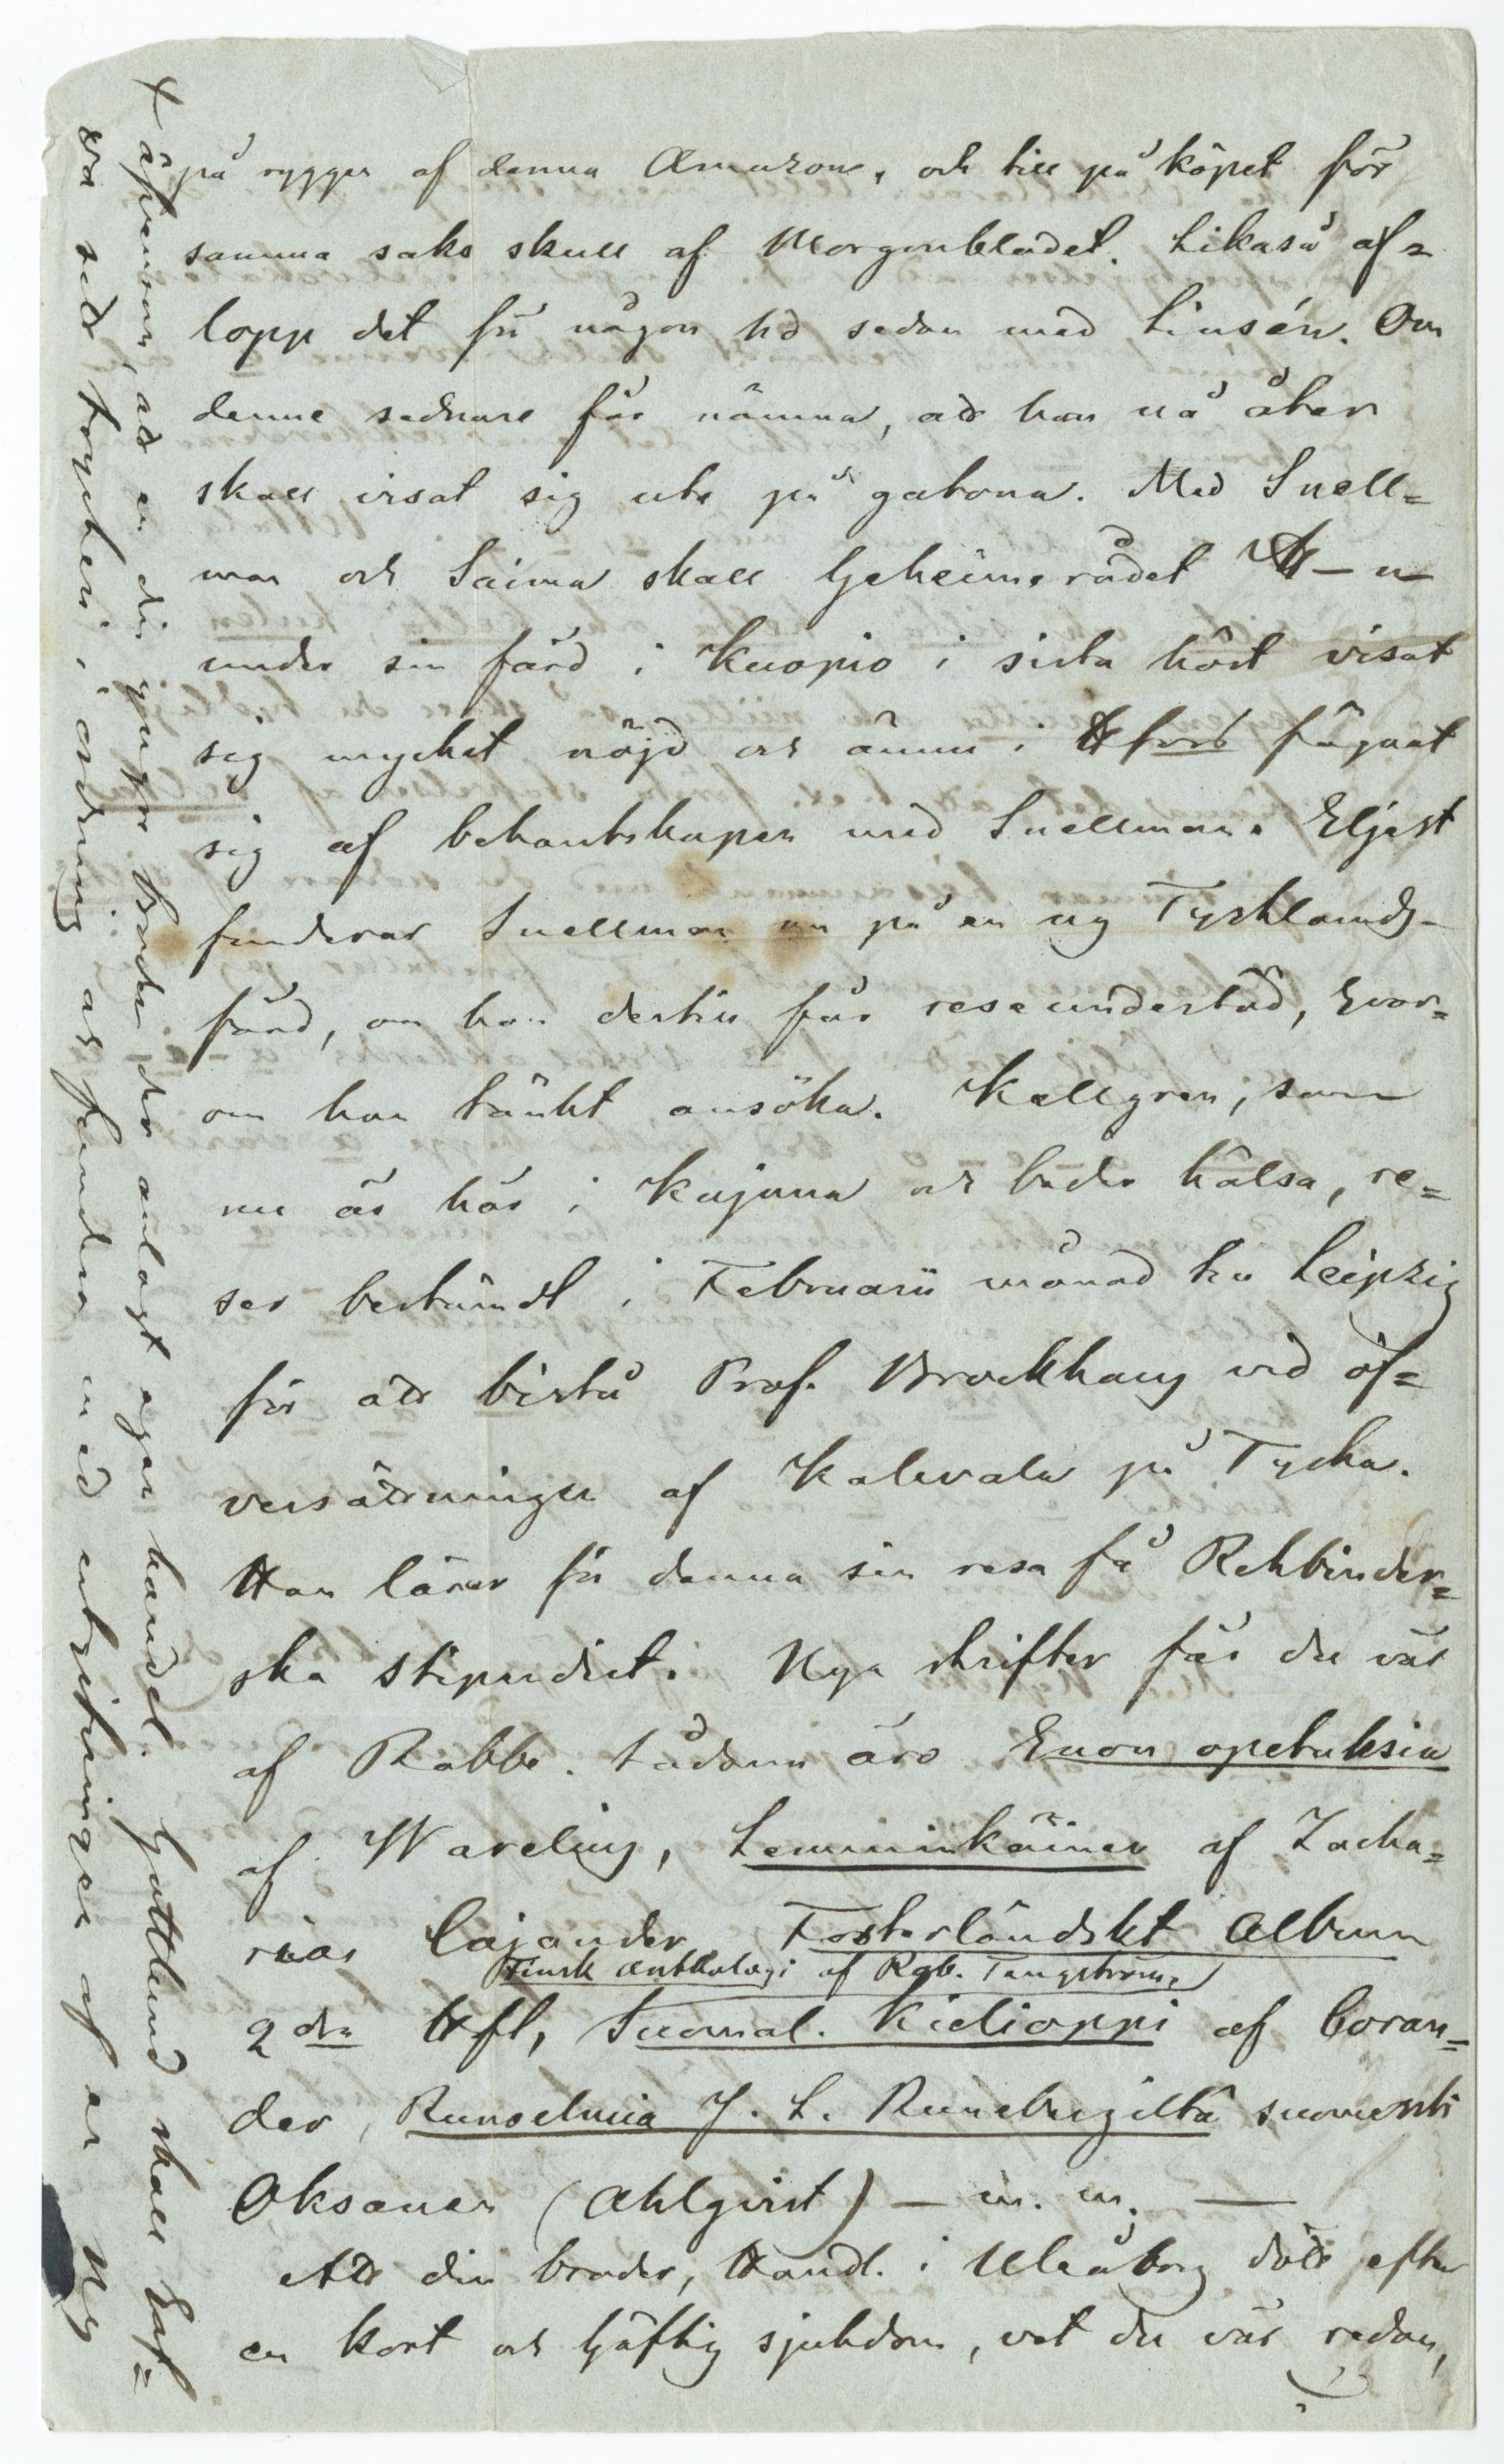 på ryggen af denna Amazon, och till på köpet för
samma saks skull af Morgonbladet. Likaså af=
lopp det för någon tid sedan med Linsén. Om
denne sednare får nämna, att han nå åter
skall visat sig ute på gatorna. Med Snell=
man och Saima skall Geheimerådet H—n
under sin färd i Kuopio i sista höst visat
sig mycket nöjd och ännu i Hfors fägnat
sig af bekantskapen med Snellman. Eljest
funderar Snellman nu på en ny Tysklands-
färd, om han dertill får reseunderstöd, hvar=
om han tänkt ansöka. Kellgren, som
nu är här i Kajana och beder hälsa, re=
ser bestämdt i Februarii månad till Leipzig
för att bistå Prof. Brockhaus vid öf=
versättningen af Kalevala på Tyska.
Han lärer för denna sin resa få Rehbinder=
ska stipendiet. Nya skrifter får du väl
af Rabbe. Sådana äro Enon opetuksia
af Warelius, Lemminkäinen af Zacha=
rias Cajander, Fosterländskt Album
Finsk Anthologi af Rob. Tengström,
2dra Hft, Suomal. Kielioppi af Coran=
der, Runoelmia J. L. Runebergiltä suomensti
Oksanen (Ahlqvist) — m. m. —
Att din broder, Handl. i Uleåborg dött efter
en kort och häftig sjukdom, vet du väl redan,
+ äfvensom, att en din yngre broder der anlagt egen handel. Gottlund skall haf=
va sitt tryckeri i ordning och fundera med utgifningen af en ny